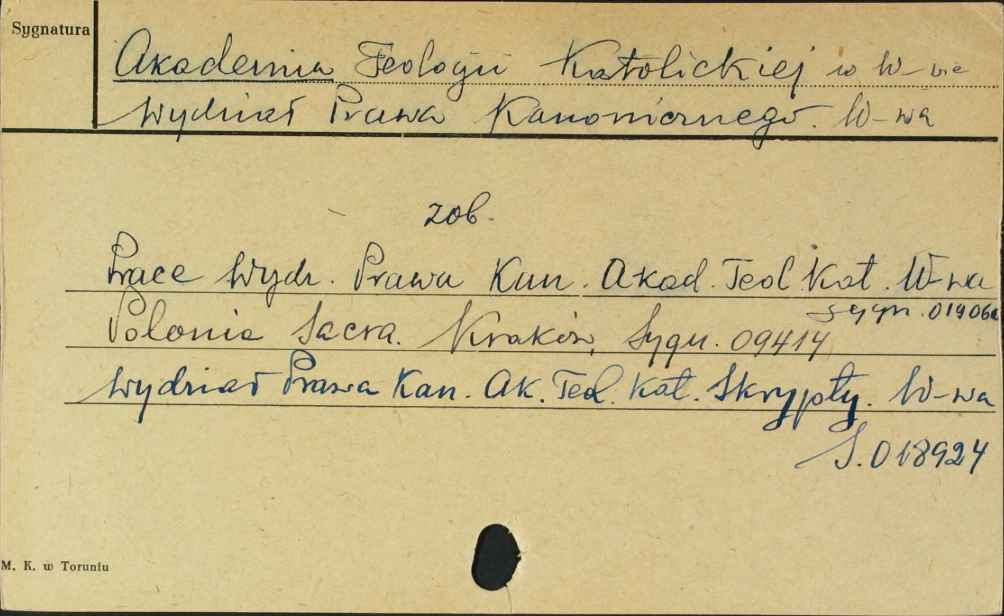 Sygnatura
Akademia Teologii Katolickiej w W-wie
Wydział Prawa Kanonicznego. W-wa
zob.
Prace Wydz. Prawa Kan. Akad. Teol Kat. W-wa
Sygn. 01906a
Polonia Sacra. Kraków, Sygn. 09414
Wydział Prawa Kan. Ak. Teol. Kat. Skrypty. W-wa
S. 018924
M. K. w Toruniu